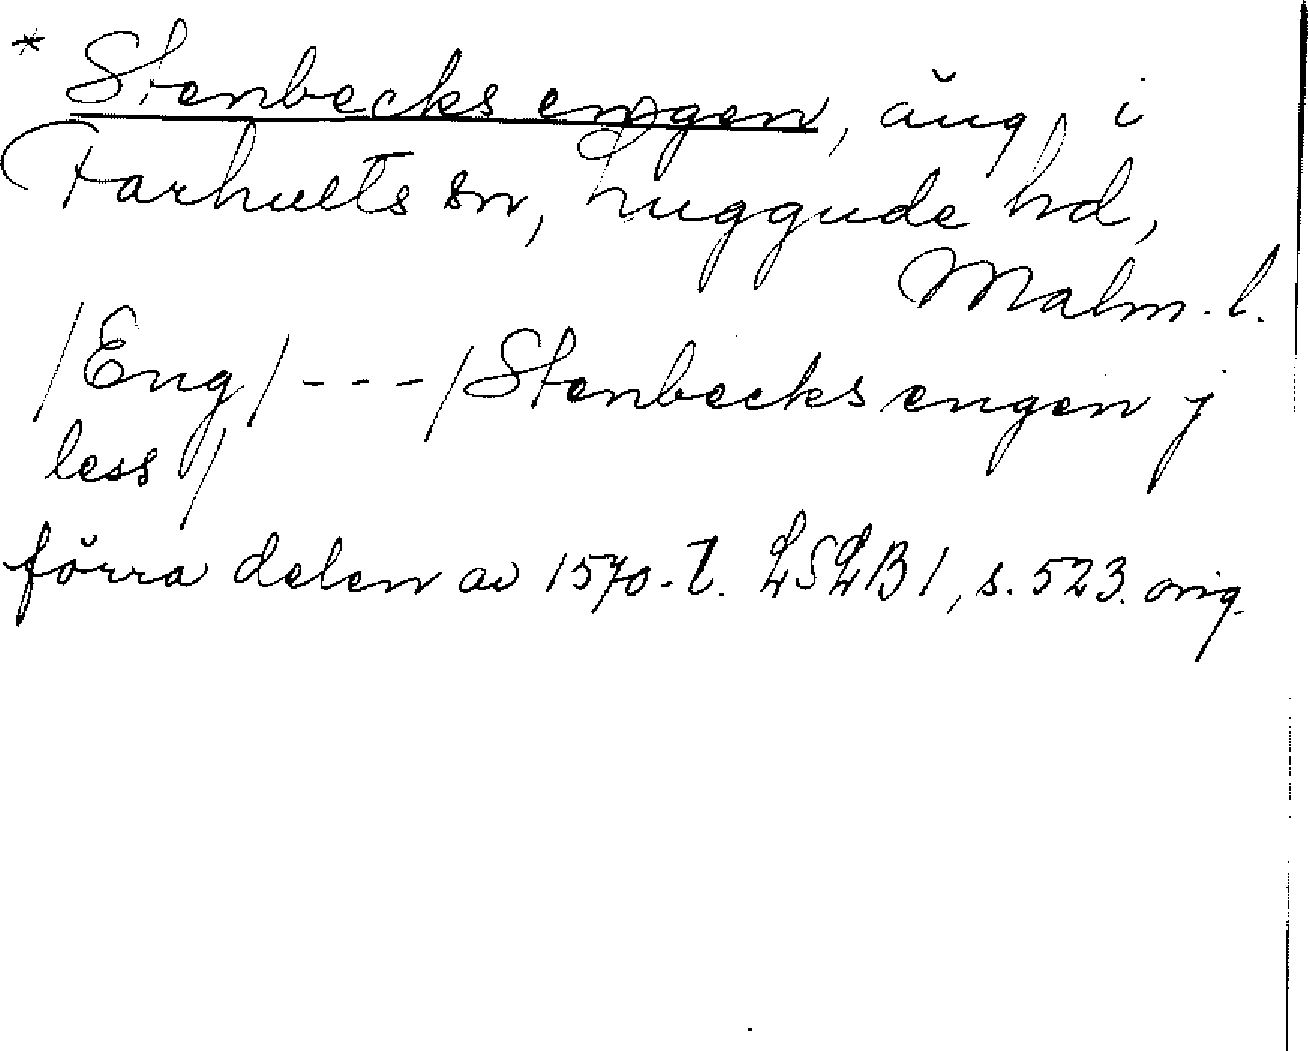 * Stenbecks engen, äng i
Farhults sn, Luggude hd,
Malm. l.
/Eng/ - - - /Stenbecks engen j
less/
förra delen av 1570-t. LSLB 1, s. 523. orig.